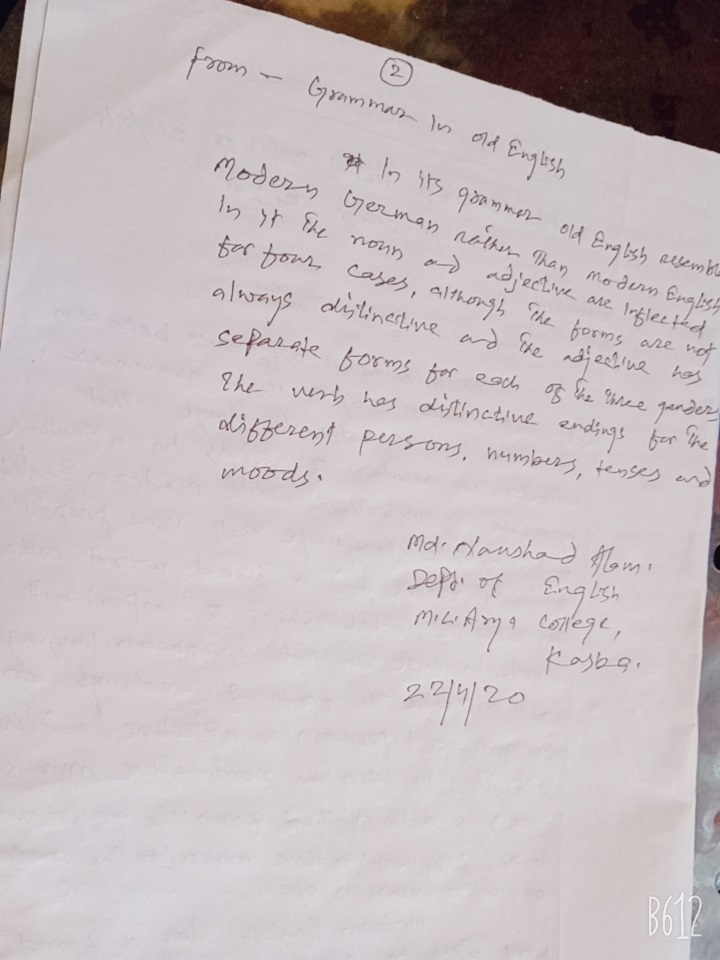 2
From - Grammar In old English
In its grammar old English resembl
Modern German rather than modern English
In it the noun and adjective are Inflected
for four cases, although the forms are not
always distinctive and the adjective has
separate forms for each of the three genders
The verb has distinctive endings for the
different persons, numbers, tenses and
moods.
Md. Naushad Alam.
Dept. of English
M.L. Arya College,
Kasba.
22/4/20
B612